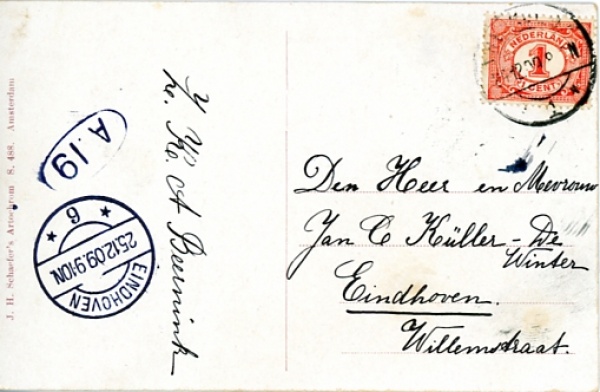 J. H. Schaefer's Artochrom S. 488. Amsterdam
A.19
EINDHOVEN
25.12.09.9-10N.
6
A Beernink
NEDERLAND
1
CENT
1
Den Heer en Mevrouw
Jan C Küller - De
Winter
Eindhoven.
Willemstraat.